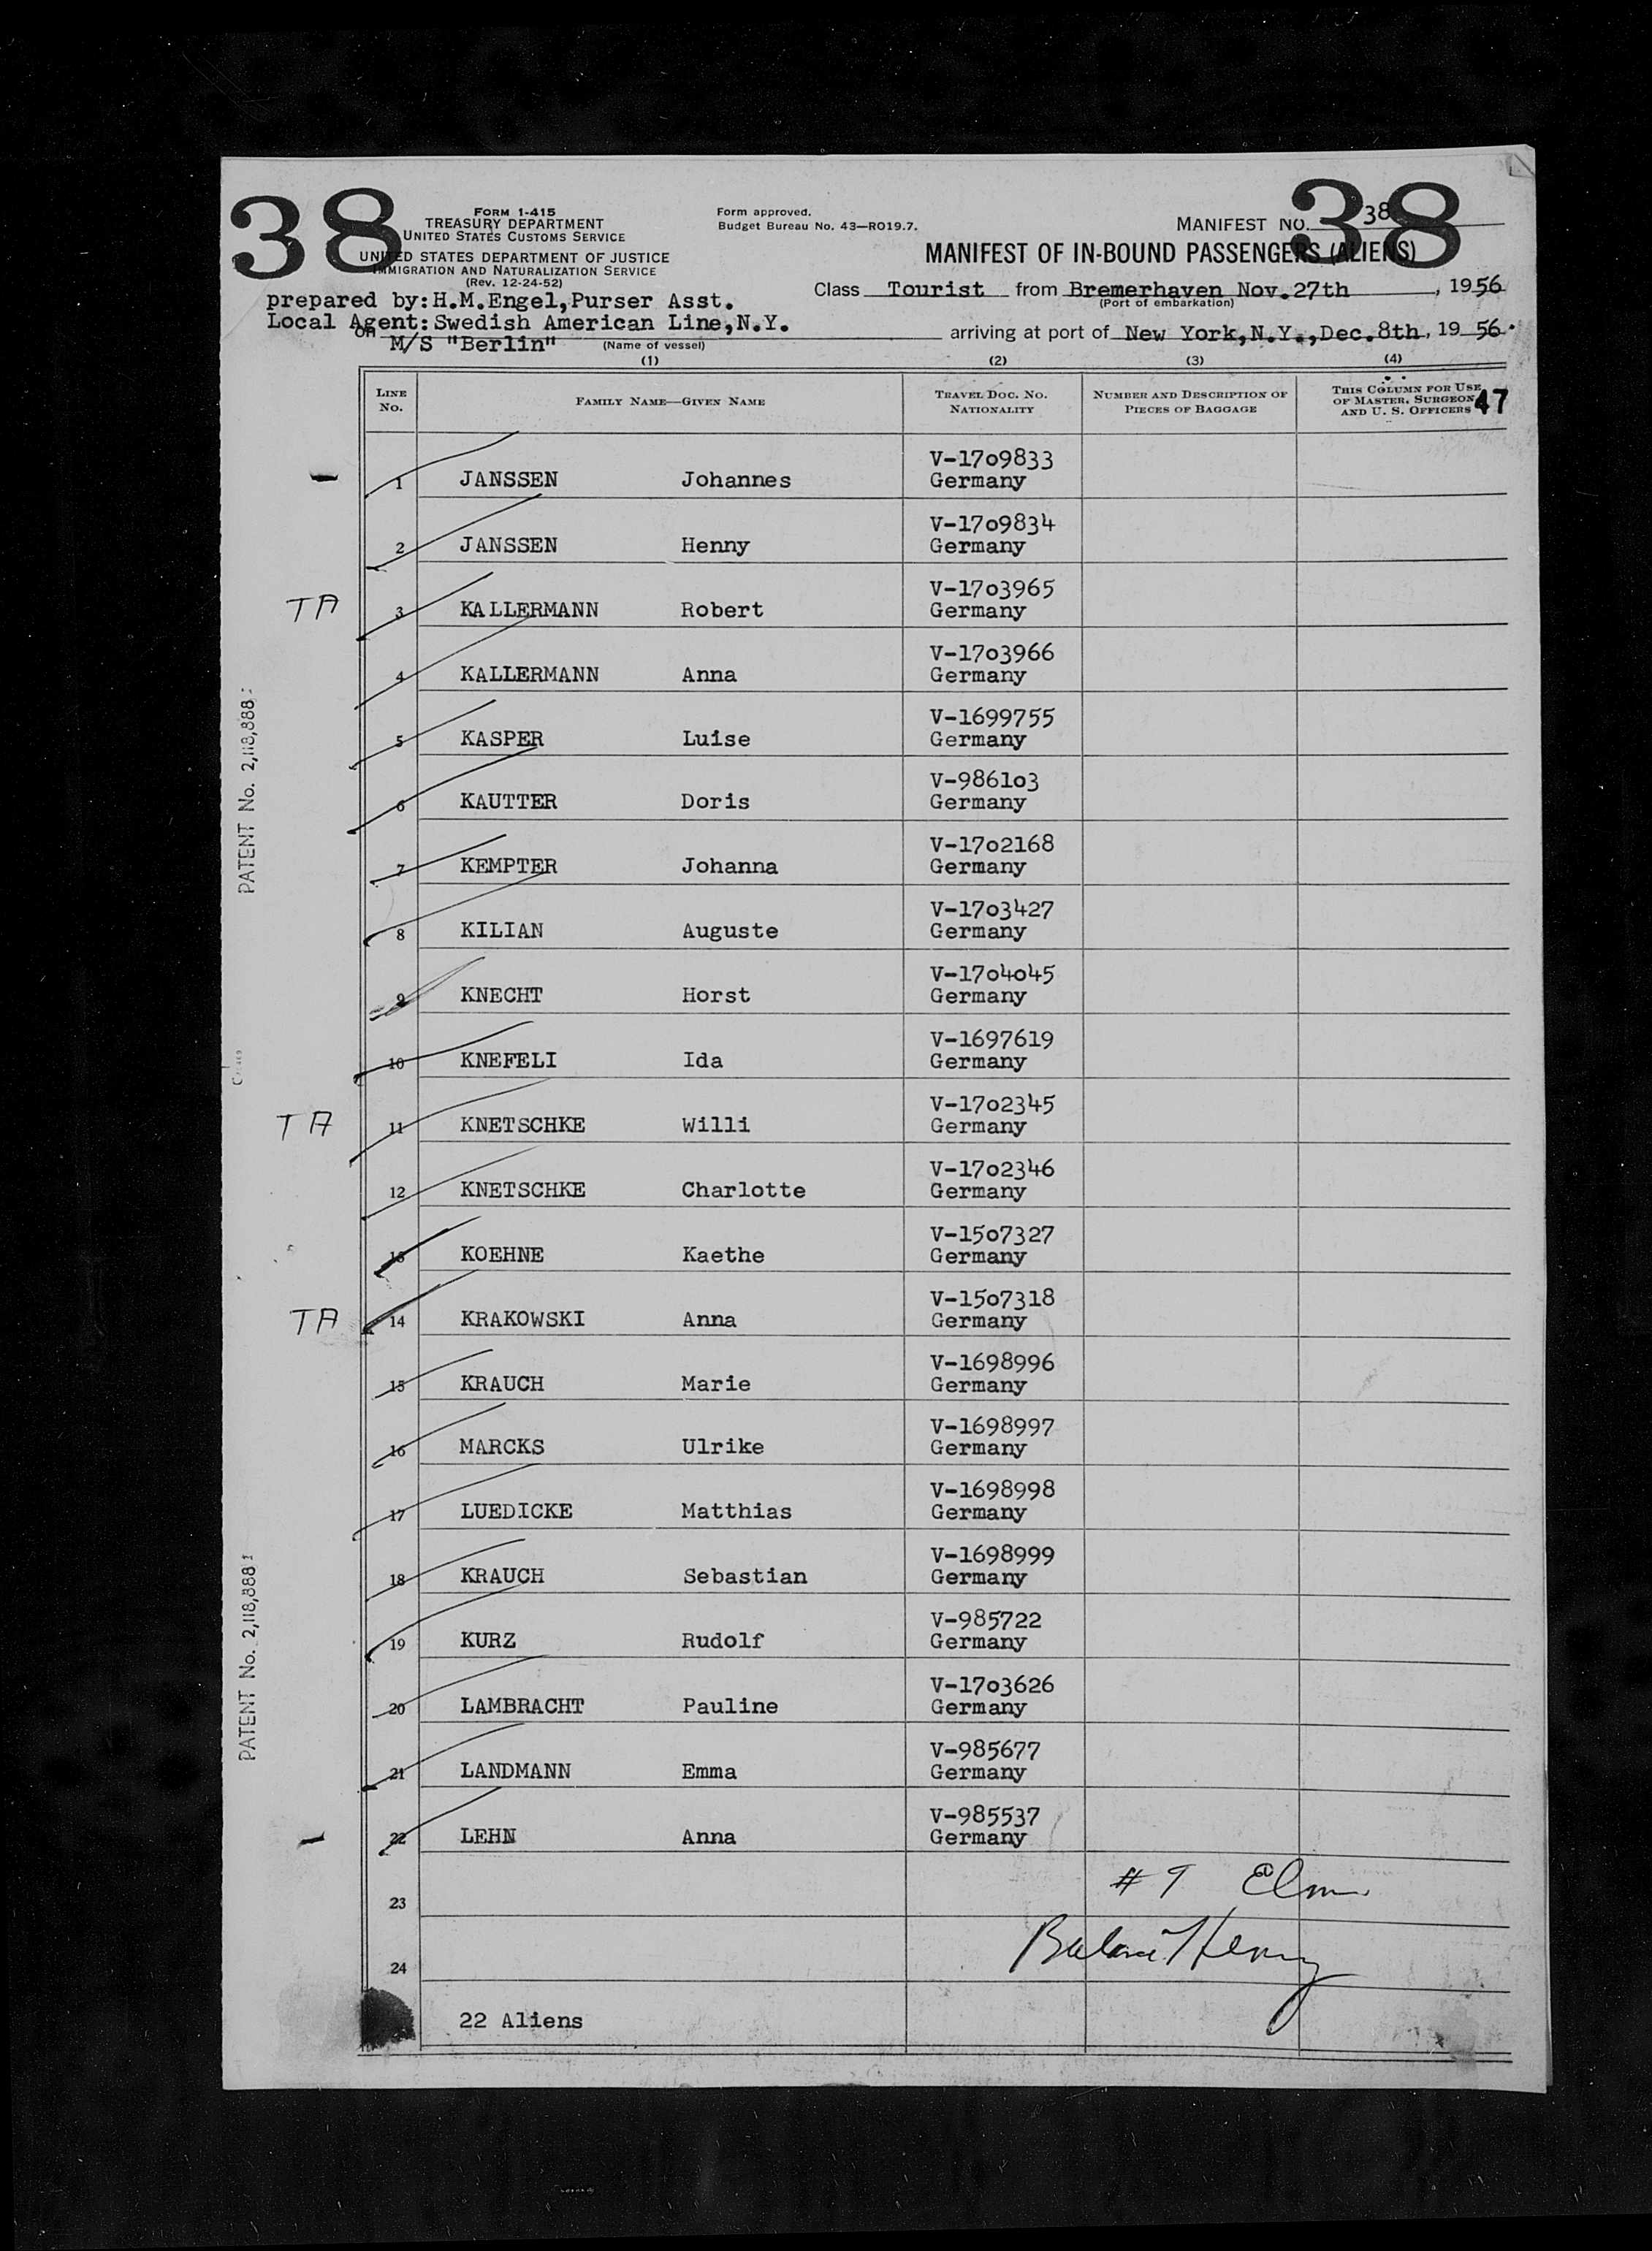 38
38
FORM I-415
TREASURY DEPARTMENT
UNITED STATES CUSTOMS SERVICE
UNITED STATES DEPARTMENT OF JUSTICE
IMMIGRATION AND NATURALIZATION SERVICE
(Rev. 12-24-52)
Form approved.
Budget Bureau No. 43—RO19.7.
MANIFEST NO. 38
MANIFEST OF IN-BOUND PASSENGERS (ALIENS)
prepared by: H.M.Engel,Purser Asst.
Local Agent: Swedish American Line,N.Y.
Class Tourist from Bremerhaven Nov.27th, 1956
(Port of embarkation)
on M/S "Berlin"
(Name of vessel)
arriving at port of New York,N.Y.,Dec.8th, 19 56.
(1) (2) (3) (4)
LINE NO. FAMILY NAME—GIVEN NAME TRAVEL DOC. NO. NATIONALITY NUMBER AND DESCRIPTION OF PIECES OF BAGGAGE THIS COLUMN FOR USE OF MASTER, SURGEON, AND U. S. OFFICERS 47
V-1709833
— 1 JANSSEN Johannes Germany
V-1709834
2 JANSSEN Henny Germany
V-1703965
TA 3 KALLERMANN Robert Germany
V-1703966
4 KALLERMANN Anna Germany
V-1699755
5 KASPER Luise Germany
V-986103
6 KAUTTER Doris Germany
V-1702168
7 KEMPTER Johanna Germany
V-1703427
8 KILIAN Auguste Germany
V-1704045
9 KNECHT Horst Germany
V-1697619
10 KNEFELI Ida Germany
V-1702345
TA 11 KNETSCHKE Willi Germany
V-1702346
12 KNETSCHKE Charlotte Germany
V-1507327
13 KOEHNE Kaethe Germany
V-1507318
TA 14 KRAKOWSKI Anna Germany
V-1698996
15 KRAUCH Marie Germany
V-1698997
16 MARCKS Ulrike Germany
V-1698998
17 LUEDICKE Matthias Germany
V-1698999
18 KRAUCH Sebastian Germany
V-985722
19 KURZ Rudolf Germany
V-1703626
20 LAMBRACHT Pauline Germany
V-985677
21 LANDMANN Emma Germany
V-985537
— 22 LEHN Anna Germany
23
24
22 Aliens
PATENT No. 2,118,888
PATENT No. 2,118,888